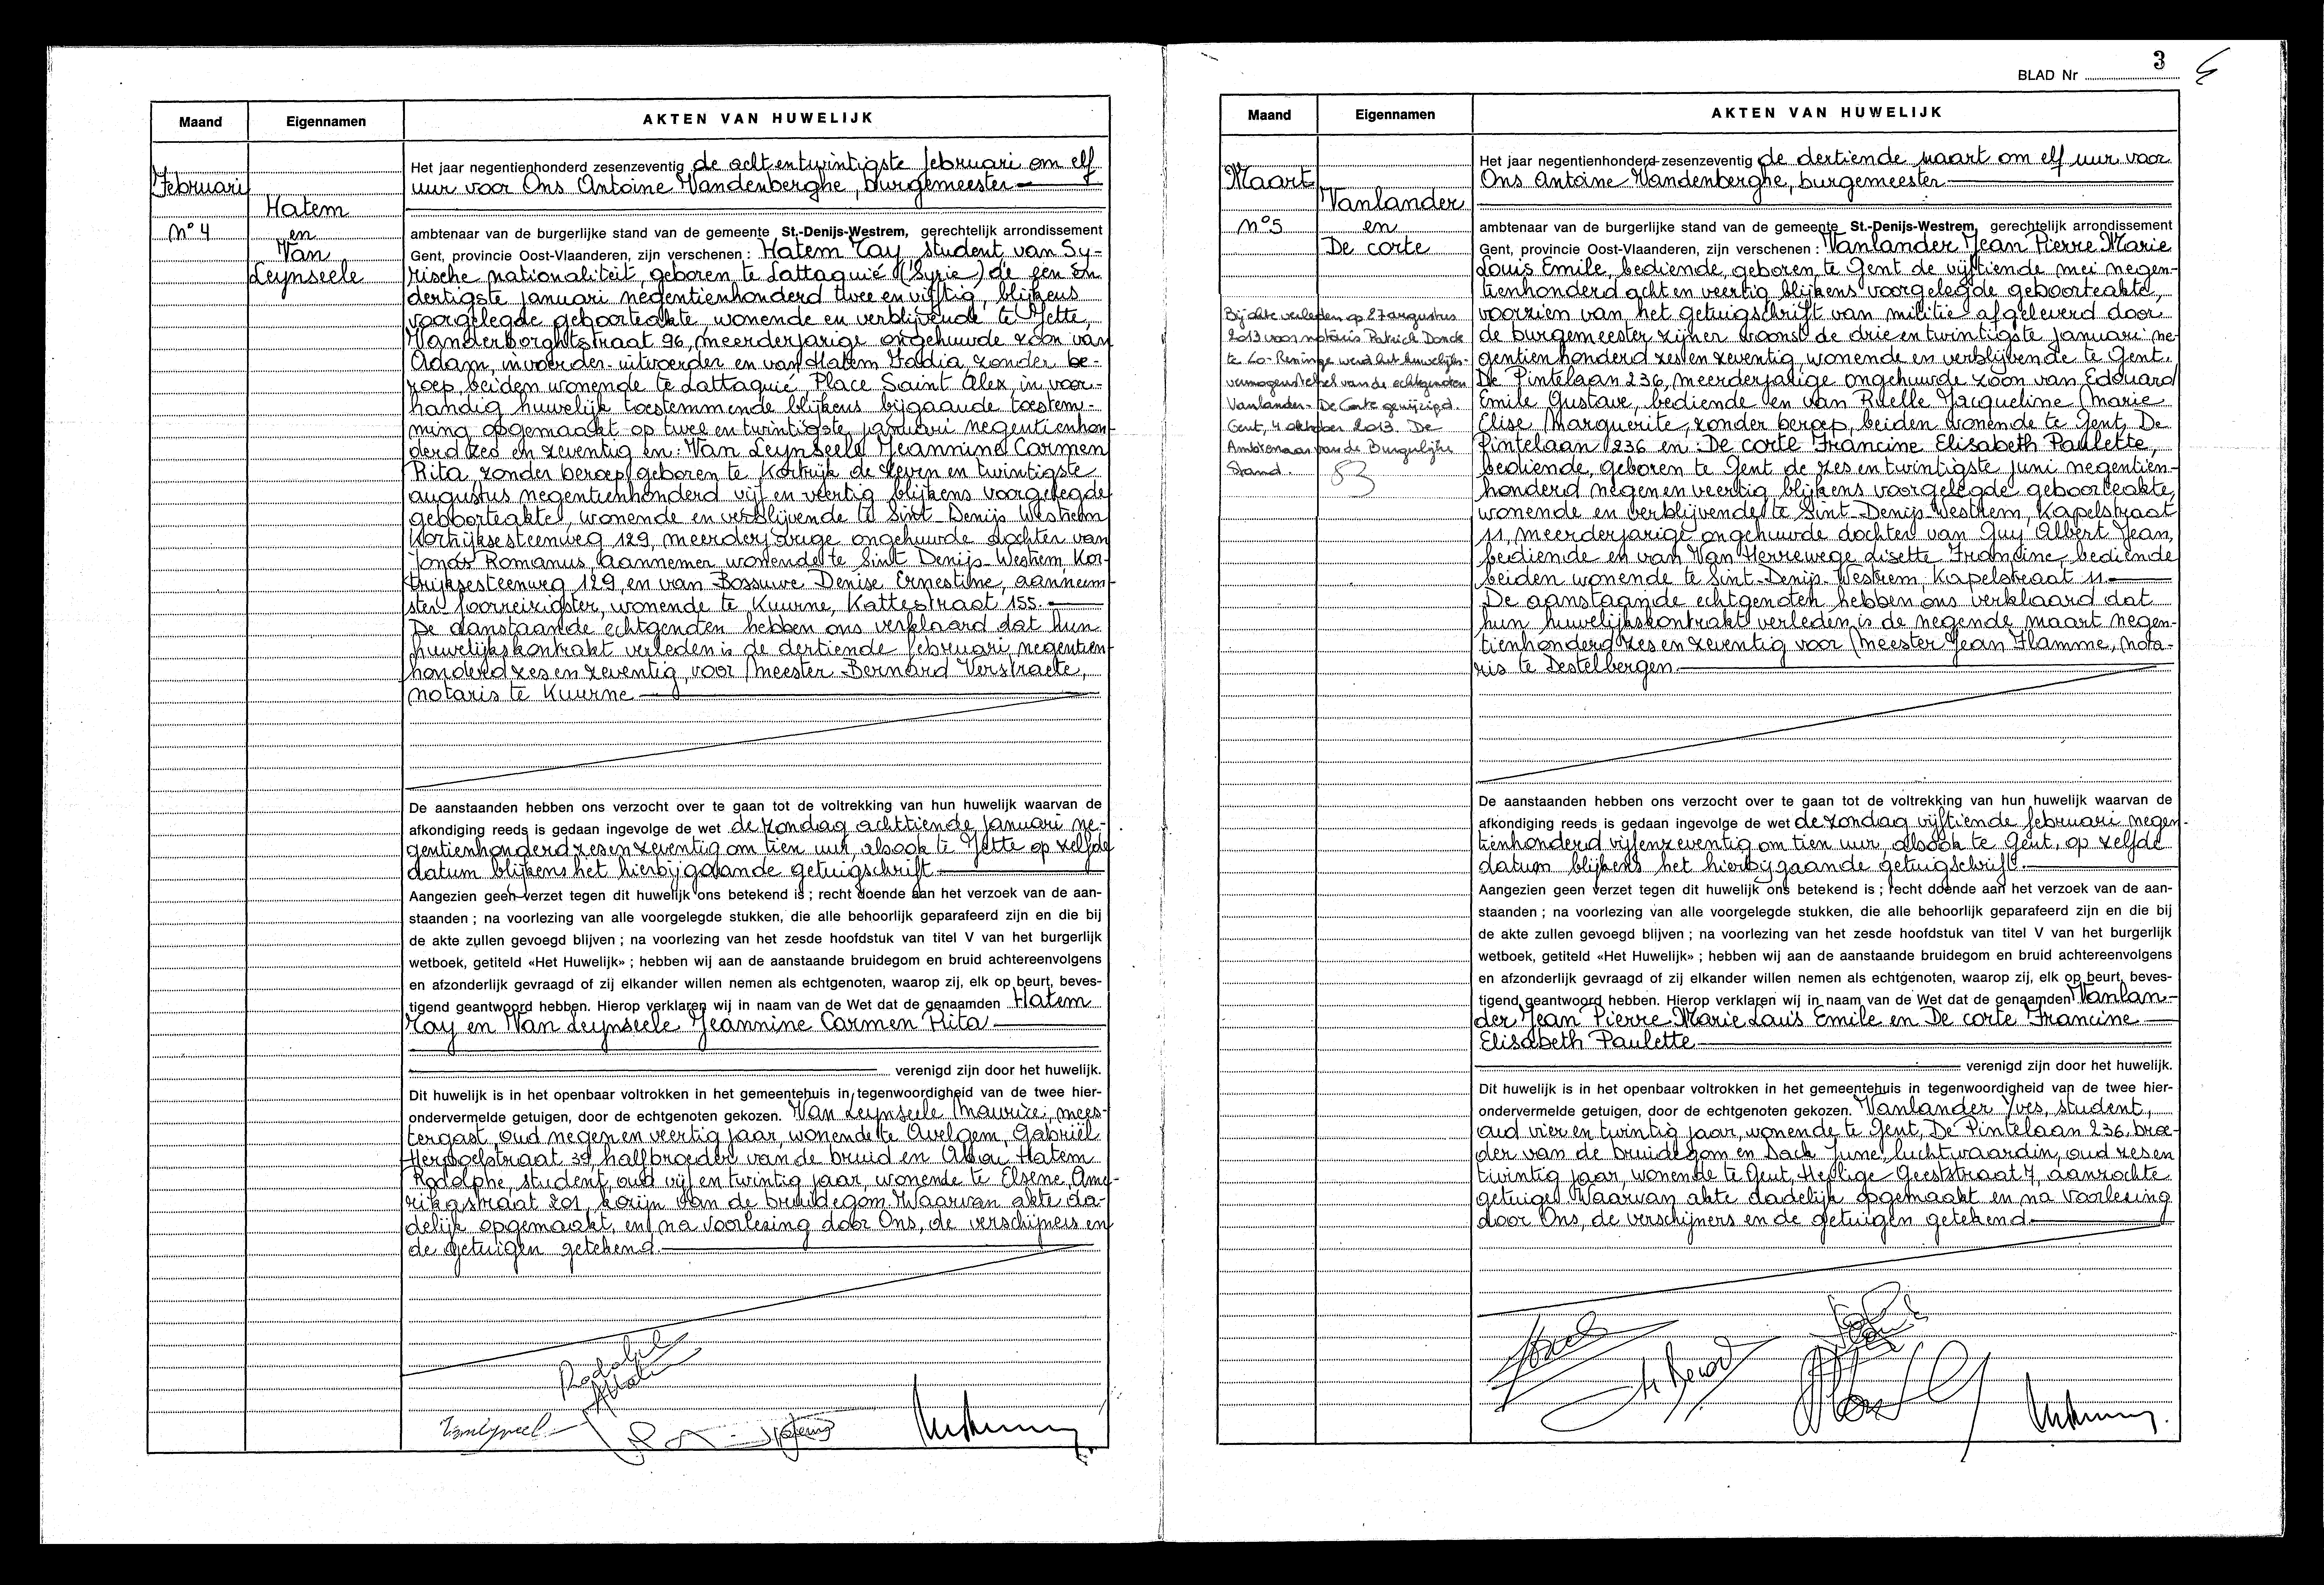 Maand
Eigennamen
AKTEN VAN HUWELIJK
Februari
N° 4
Hatem
en
Van
Leynseele
Het jaar negentienhonderd zesenzeventig de achtentwintigste februari om elf
uur voor Ons Antoine Vandenberghe, burgemeester
ambtenaar van de burgerlijke stand van de gemeente St.-Denijs-Westrem, gerechtelijk arrondissement
Gent, provincie Oost-Vlaanderen, zijn verschenen : Hatem Tay, student van Sy-
rische nationaliteit, geboren te Lattaquié (Syrie) de een en
dertigste januari negentienhonderd twee en vijftig, blijkens
voorgelegde geboorteakte, wonende en verblijvende te Jette,
Vanderborghtstraat 96, meerderjarige ongehuwde zoon van
Adam, invoerder-uitvoerder en van Hatem Fadia, zonder be-
roep, beiden wonende te Lattaquié, Place Saint Alex, in voor-
handig huwelijk toestemmende blijkens bijgaande toestem-
ming opgemaakt op twee en twintigste januari negentienhon-
derd zes en zeventig en: Van Leynseele Jeannine Carmen
Rita, zonder beroep, geboren te Kortrijk de zeven en twintigste
augustus negentienhonderd vijf en veertig blijkens voorgelegde
geboorteakte, wonende en verblijvende te Sint-Denijs Westrem
Kortrijksesteenweg 129, meerderjarige ongehuwde dochter van
Jonas Romanus, aannemer wonende te Sint Denijs-Westrem, Kor-
trijksesteenweg 129, en van Bossuwe Denise Ernestine, aanneem-
ster wonende te Kuurne, Kattestraat 155.
De aanstaande echtgenoten hebben ons verklaard dat hun
huwelijkskontrakt verleden is de dertiende februari negentien-
honderd zes en zeventig, voor Meester Bernard Verstraete,
notaris te Kuurne
De aanstaanden hebben ons verzocht over te gaan tot de voltrekking van hun huwelijk waarvan de
afkondiging reeds is gedaan ingevolge de wet de zondag achttiende januari ne-
gentienhonderd zes en zeventig om tien uur, alsook te Jette op zelfde
datum blijkens het hierbijgaande getuigschrift
Aangezien geen verzet tegen dit huwelijk ons betekend is ; recht doende aan het verzoek van de aan-
staanden ; na voorlezing van alle voorgelegde stukken, die alle behoorlijk geparafeerd zijn en die bij
de akte zullen gevoegd blijven ; na voorlezing van het zesde hoofdstuk van titel V van het burgerlijk
wetboek, getiteld «Het Huwelijk» ; hebben wij aan de aanstaande bruidegom en bruid achtereenvolgens
en afzonderlijk gevraagd of zij elkander willen nemen als echtgenoten, waarop zij, elk op beurt, beves-
tigend geantwoord hebben. Hierop verklaren wij in naam van de Wet dat de genaamden Hatem
Tay en Van Leynseele Jeannine Carmen Rita
verenigd zijn door het huwelijk.
Dit huwelijk is in het openbaar voltrokken in het gemeentehuis in tegenwoordigheid van de twee hier-
ondervermelde getuigen, door de echtgenoten gekozen. Van Leynseele Maurice, mees-
tergast, oud negen en veertig jaar, wonende te Avelgem, Gabriël
Herpoelstraat 39, halfbroeder van de bruid en Hatem
Rodolphe, student, oud vijf en twintig jaar, wonende te Elsene, Ame-
rikastraat 201, kozijn van de bruidegom. Waarvan akte da-
delijk opgemaakt, en na voorlezing door Ons, de verschijners en
de getuigen getekend.
BLAD Nr 3
Maand
Eigennamen
AKTEN VAN HUWELIJK
Maart
N° 5
Vanlander
en
De corte
Bij akte verleden op 27 augustus
2013 voor notaris Patrick Donck
te Lo-Reninge werd het huwelijks-
vermogenstelsel van de echtgenoten
Vanlander-De Corte gewijzigd.
Gent, 4 oktober 2013. De
Ambtenaar van de Burgerlijke
Stand.
Het jaar negentienhonderd zesenzeventig de dertiende maart om elf uur voor
Ons Antoine Vandenberghe, burgemeester
ambtenaar van de burgerlijke stand van de gemeente St.-Denijs-Westrem, gerechtelijk arrondissement
Gent, provincie Oost-Vlaanderen, zijn verschenen : Vanlander Jean Pierre Marie
Louis Emile, bediende, geboren te Gent de vijftiende mei negen-
tienhonderd acht en veertig blijkens voorgelegde geboorteakte,
voorzien van het getuigschrift van militie afgeleverd door
de burgemeester zijner woonst de drie en twintigste januari ne-
gentienhonderd zes en zeventig, wonende en verblijvende te Gent.
De Pintelaan 236, meerderjarige ongehuwde zoon van Edouard
Emile Gustave, bediende en van Ruelle Jacqueline Marie
Elise Marguerite, zonder beroep, beiden wonende te Gent, De
Pintelaan 236 en: De corte Francine Elisabeth Paulette,
bediende, geboren te Gent de zes en twintigste juni negentien-
honderd negen en veertig, blijkens voorgelegde geboorteakte,
wonende en verblijvende te Sint-Denijs-Westrem, Kapelstraat
11, meerderjarige ongehuwde dochter van Guy Albert Jean,
bediende en van Van Herrewege Lisette Francine, bediende
beiden wonende te Sint-Denijs-Westrem, Kapelstraat 11.
De aanstaande echtgenoten hebben ons verklaard dat
hun huwelijkskontrakt verleden is de negende maart negen-
tienhonderd zes en zeventig voor Meester Jean Flamme, nota-
ris te Destelbergen
De aanstaanden hebben ons verzocht over te gaan tot de voltrekking van hun huwelijk waarvan de
afkondiging reeds is gedaan ingevolge de wet de zondag vijftiende februari negen-
tienhonderd vijfenzeventig om tien uur alsook te Gent, op zelfde
datum blijkens het hierbijgaande getuigschrift.
Aangezien geen verzet tegen dit huwelijk ons betekend is ; recht doende aan het verzoek van de aan-
staanden ; na voorlezing van alle voorgelegde stukken, die alle behoorlijk geparafeerd zijn en die bij
de akte zullen gevoegd blijven ; na voorlezing van het zesde hoofdstuk van titel V van het burgerlijk
wetboek, getiteld «Het Huwelijk» ; hebben wij aan de aanstaande bruidegom en bruid achtereenvolgens
en afzonderlijk gevraagd of zij elkander willen nemen als echtgenoten, waarop zij, elk op beurt, beves-
tigend geantwoord hebben. Hierop verklaren wij in naam van de Wet dat de genaamden Vanlan-
der Jean Pierre Marie Louis Emile en De corte Francine
Elisabeth Paulette
verenigd zijn door het huwelijk.
Dit huwelijk is in het openbaar voltrokken in het gemeentehuis in tegenwoordigheid van de twee hier-
ondervermelde getuigen, door de echtgenoten gekozen. Vanlander Yves, student,
oud vier en twintig jaar, wonende te Gent, De Pintelaan 236, broe-
der van de bruidegom en Dack June, luchtwaardin, oud zes en
twintig jaar, wonende te Gent, Heilige Geeststraat 7, aanzochte
getuige. Waarvan akte dadelijk opgemaakt en na voorlezing
door Ons, de verschijners en de getuigen getekend